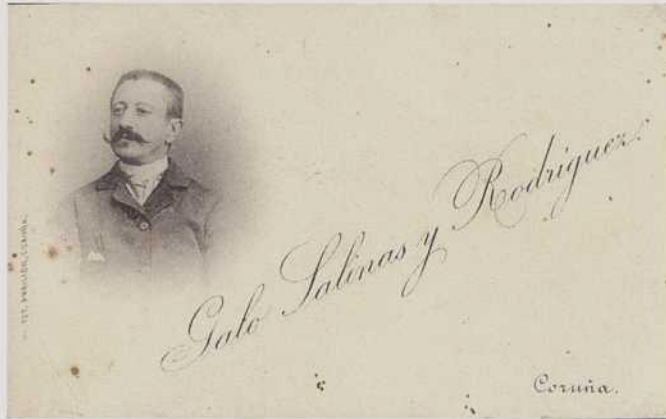 Galo Salinas y Rodríguez.
Coruña.